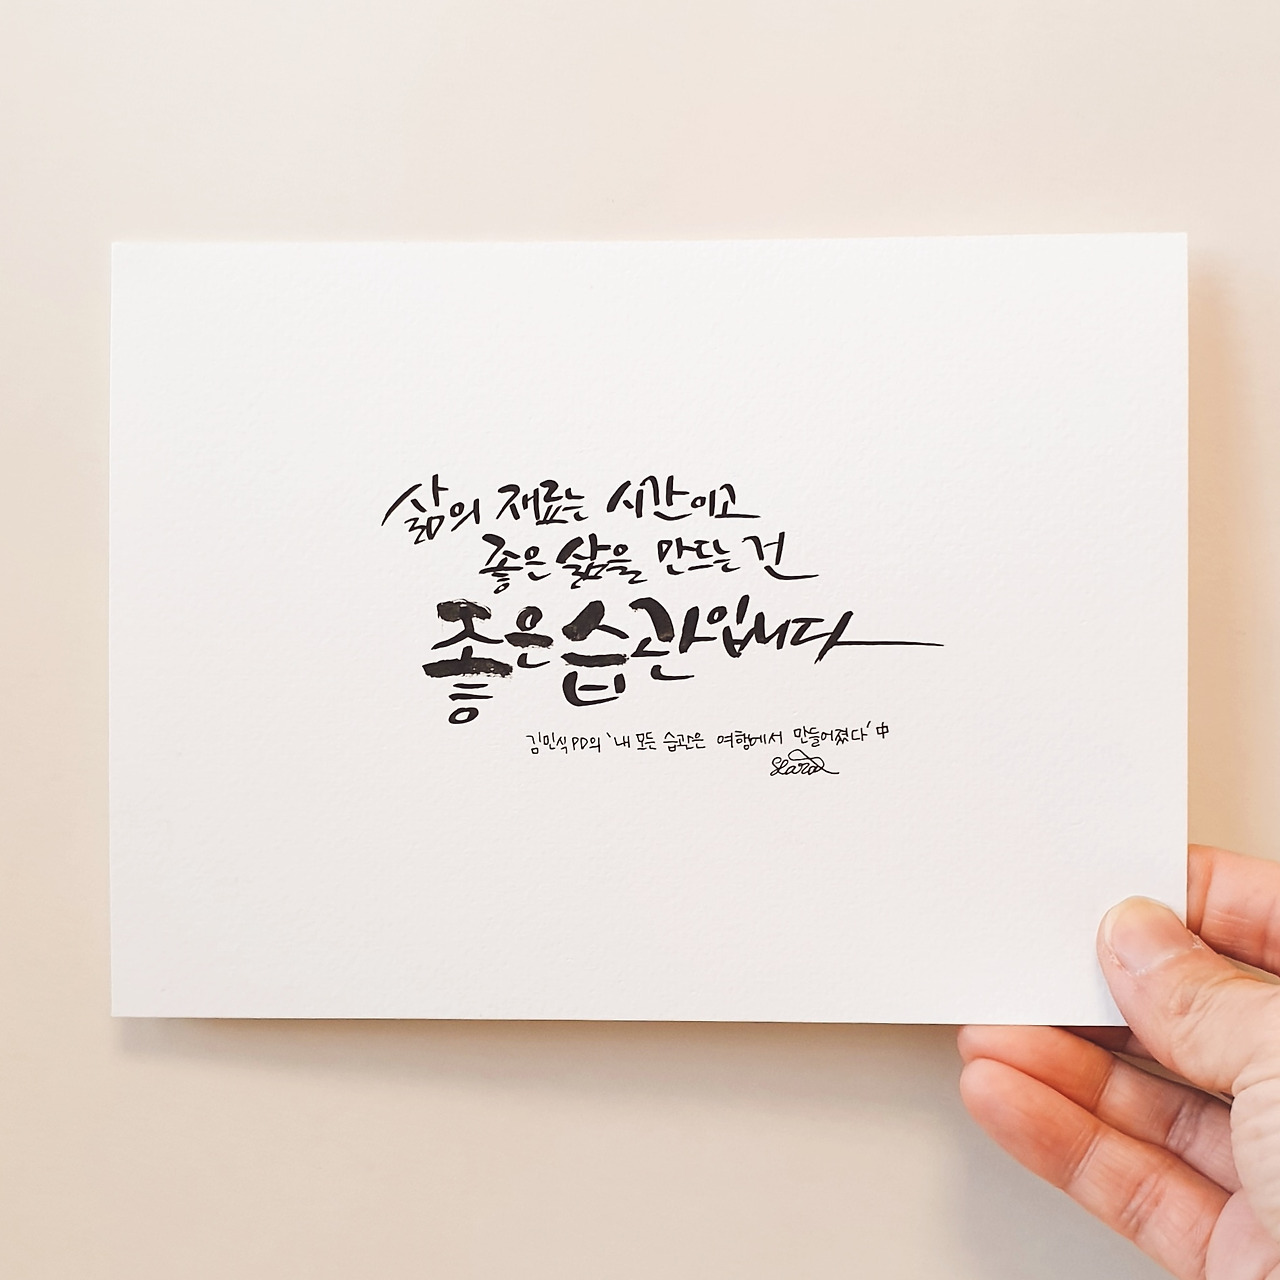 삶의 재료는 시간이고
좋은 삶을 만드는 건
좋은 습관입니다
김민식PD의 '내 모든 습관은 여행에서 만들어졌다' 中